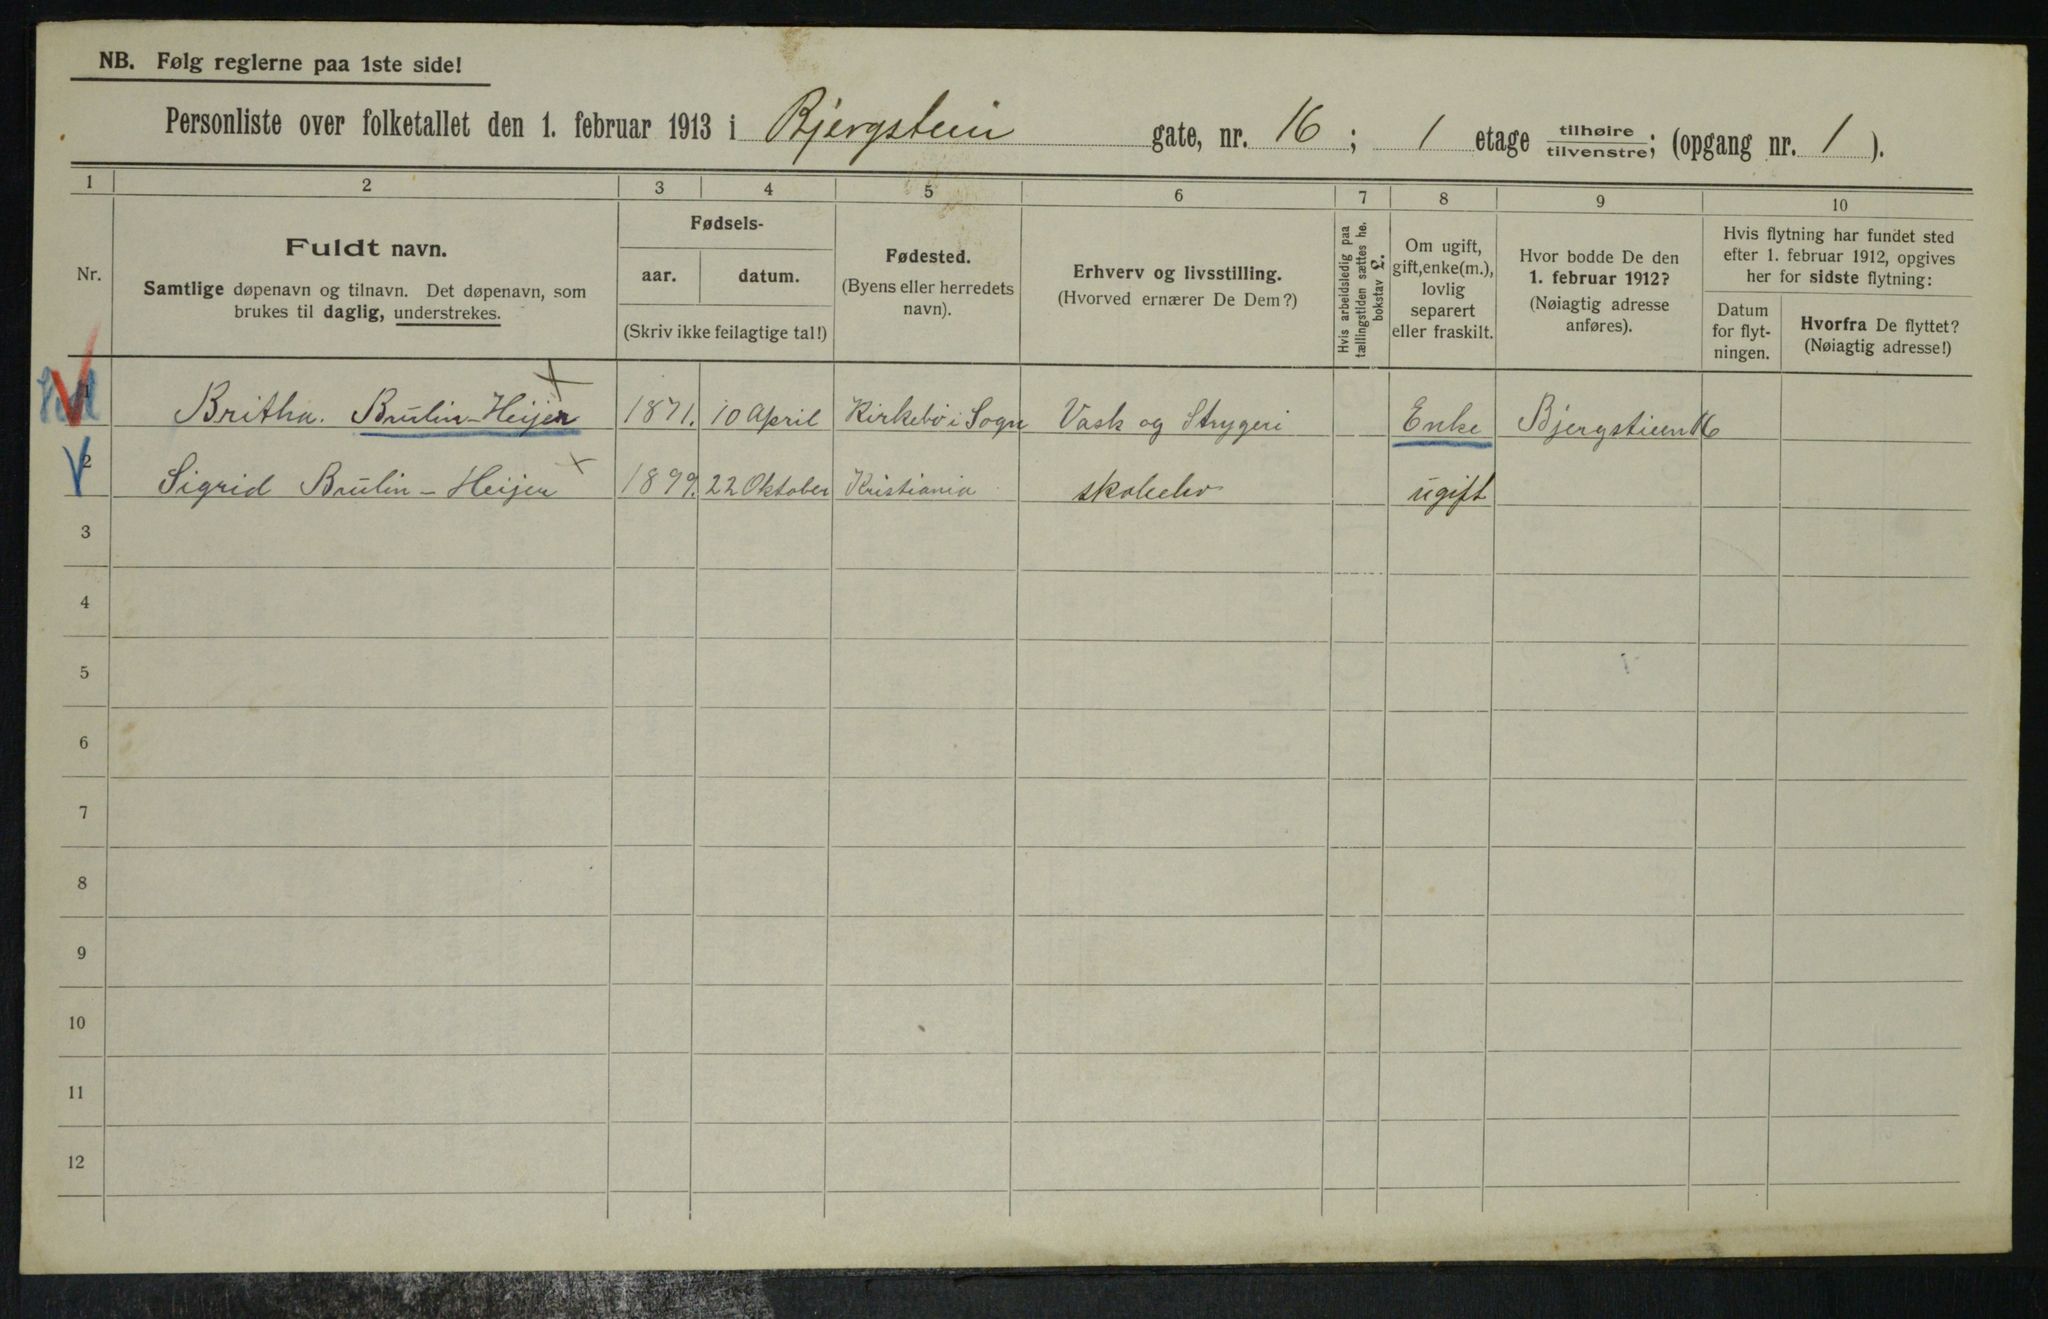 NB. Følg reglerne paa 1ste side!
Personliste over folketallet den 1. februar 1913 i Bjergstein gate, nr. 16; 1 etage tilhøire tilvenstre; (opgang nr. 1).
1 2 3 4 5 6 7 8 9 10
Nr.
Fuldt navn.
Samtlige døpenavn og tilnavn. Det døpenavn, som
brukes til daglig, understrekes.
Fødsels-
aar. datum.
(Skriv ikke feilagtige tal!)
Fødested.
(Byens eller herredets
navn).
Erhverv og livsstilling.
(Hvorved ernærer De Dem?)
Hvis arbeidsledig paa
tællingstiden sættes he.
bokstav L.
Om ugift,
gift, enke(m.),
lovlig
separert
eller fraskilt.
Hvor bodde De den
1. februar 1912?
(Nøiagtig adresse
anføres).
Hvis flytning har fundet sted
efter 1. februar 1912, opgives
her for sidste flytning:
Datum
for flyt-
ningen.
Hvorfra De flyttet?
(Nøiagtig adresse!)
1 Britha. Brulin-Heijer 1871. 10 April Kirkebø i Sogn Vask og Strygeri Enke Bjergstieen 16
2 Sigrid Brulin-Heijer 1899. 22 Oktober Kristiania skoleelev ugift
3
4
5
6
7
8
9
10
11
12